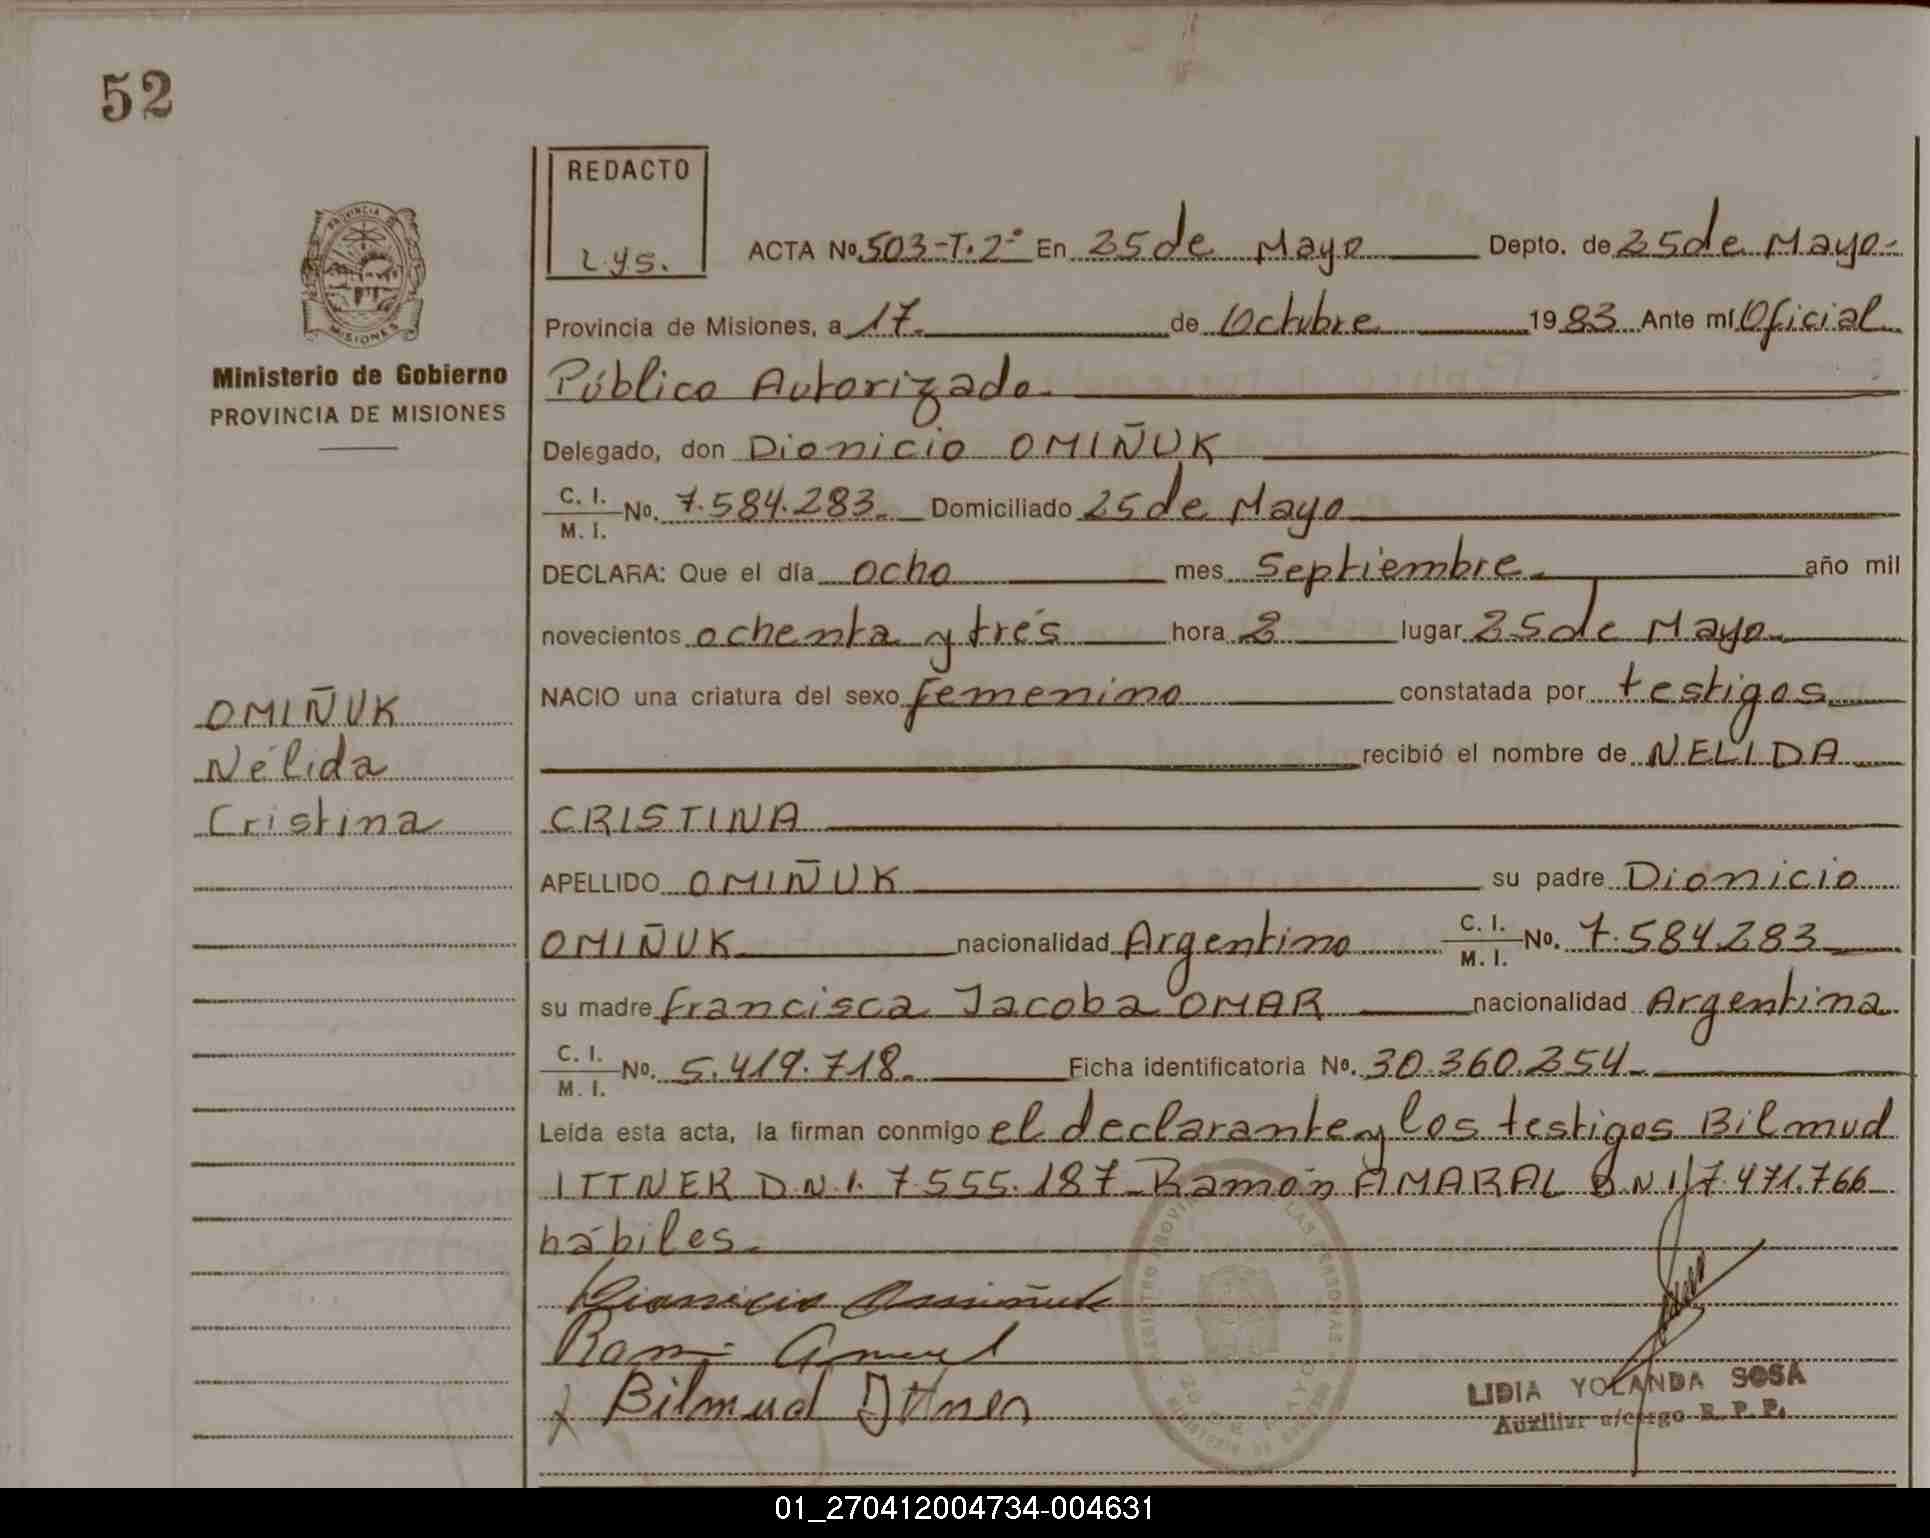 52
REDACTO
Lys.
PROVINCIA DE
MISIONES
Ministerio de Gobierno
PROVINCIA DE MISIONES
ACTA Nº 503-T.2º En 25 de Mayo Depto. de 25 de Mayo-
Provincia de Misiones, a 17. de Octubre 1983 Ante mí Oficial
Público Autorizado.
Delegado, don Dionicio OMIÑUK
C. I. / M. I. No. 7.584.283. Domiciliado 25 de Mayo
DECLARA: Que el día ocho mes Septiembre. año mil
novecientos ochenta y trés hora 2 lugar 25 de Mayo.
NACIO una criatura del sexo femenino constatada por testigos
recibió el nombre de NELIDA
CRISTINA
APELLIDO OMIÑUK su padre Dionicio
OMIÑUK nacionalidad Argentino C. I. / M. I. No. 7.584.283
su madre Francisca Jacoba OMAR nacionalidad Argentina
C. I. / M. I. No. 5.419.718. Ficha identificatoria No. 30.360.254
Leída esta acta, la firman conmigo el declarante y los testigos Bilmud
ITTNER D.N.I. 7.555.187-Ramón AMARAL D.N.I 7.471.766
hábiles.
Dionicio Omiñuk
Bilmud Ittner
LIDIA YOLANDA SOSA
Auxiliar a/cargo R. P. P.
OMIÑUK
Nélida
Cristina
01_270412004734-004631